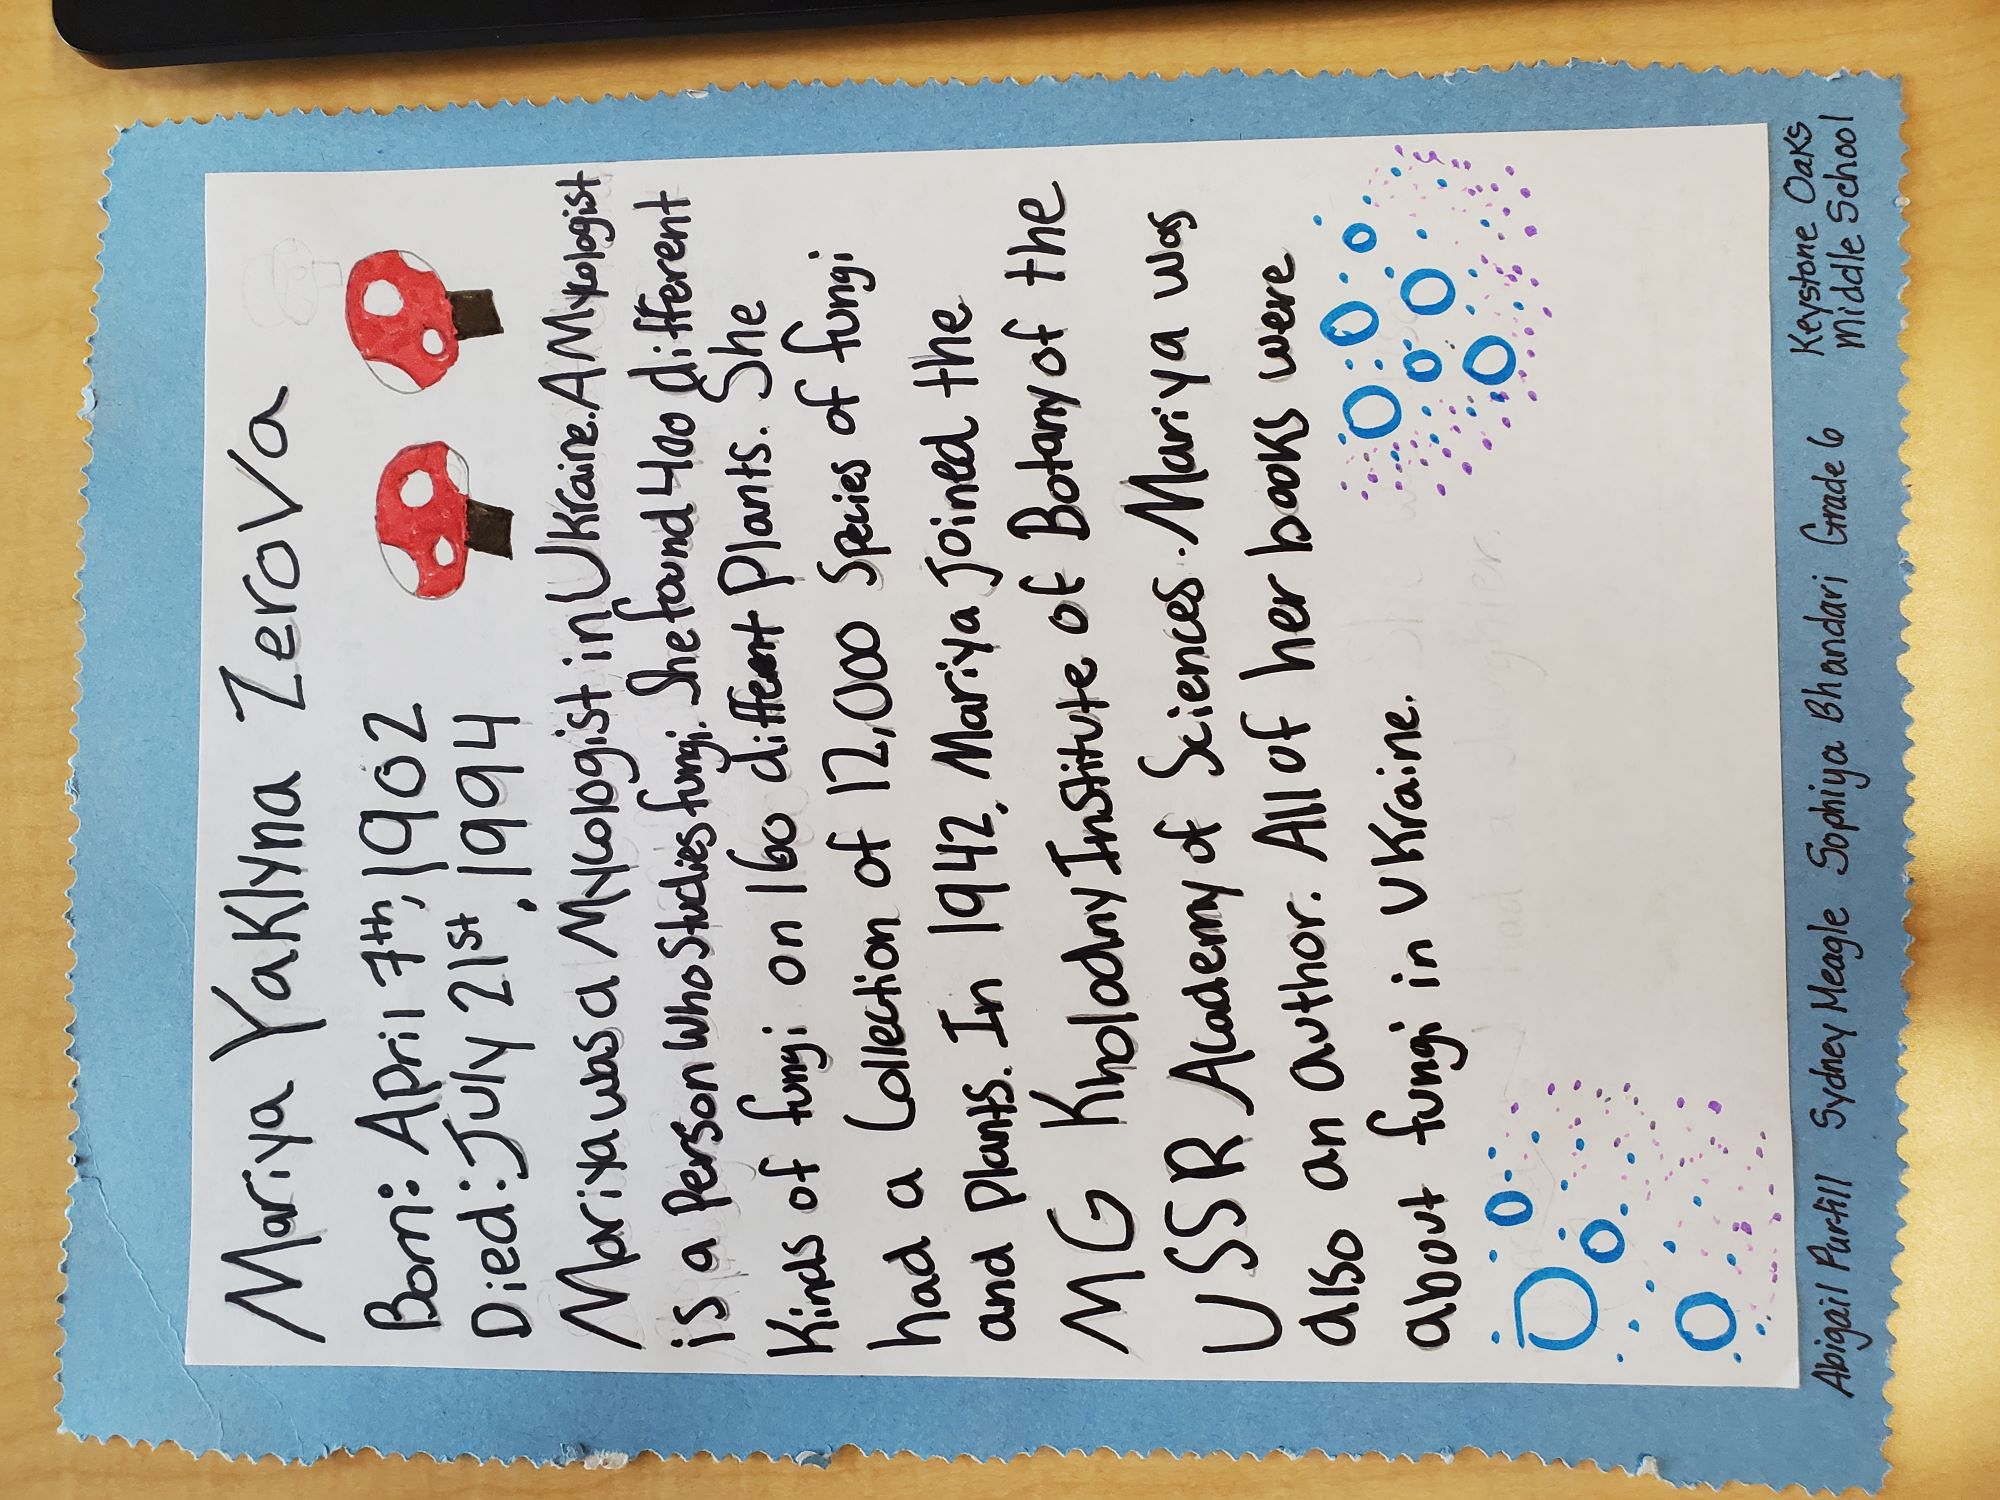 Mariya Yaklyna Zerova
Born: April 7th, 1902
Died: July 21st, 1994
Mariya was a Mycologist in Ukraine. A Mycologist
is a Person Who Studies fungi. She found 400 different
Kinds of fungi on 160 different Plants. She
had a Collection of 12,000 Species of fungi
and Plants. In 1942, Mariya Joined the
MG Kholodny Institute of Botany of the
USSR Academy of Sciences. Mariya was
also an author. All of her books were
about fungi in Ukraine.
Abigail Partill Sydney Meagle Sophiya Bhandari Grade 6 Keystone Oaks
Middle School